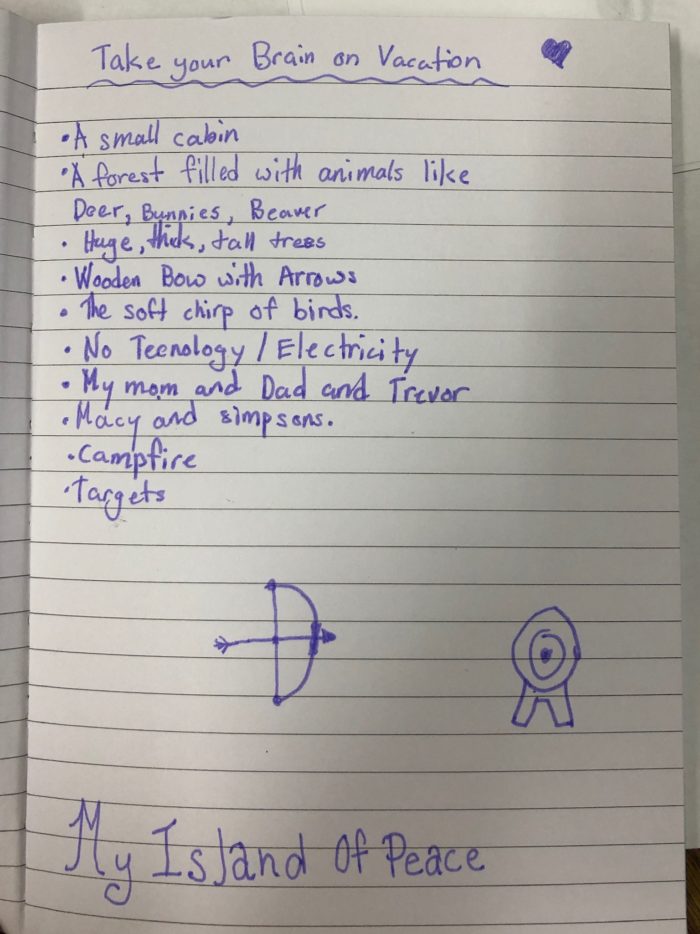 Take your Brain on Vacation
• A small cabin
• A forest filled with animals like
Deer, Bunnies, Beaver
• Huge, thick, tall trees
• Wooden Bow with Arrows
• The soft chirp of birds.
• No Teenology / Electricity
• My mom and Dad and Trevor
• Macy and simpsons.
• Campfire
• Targets
My Island Of Peace